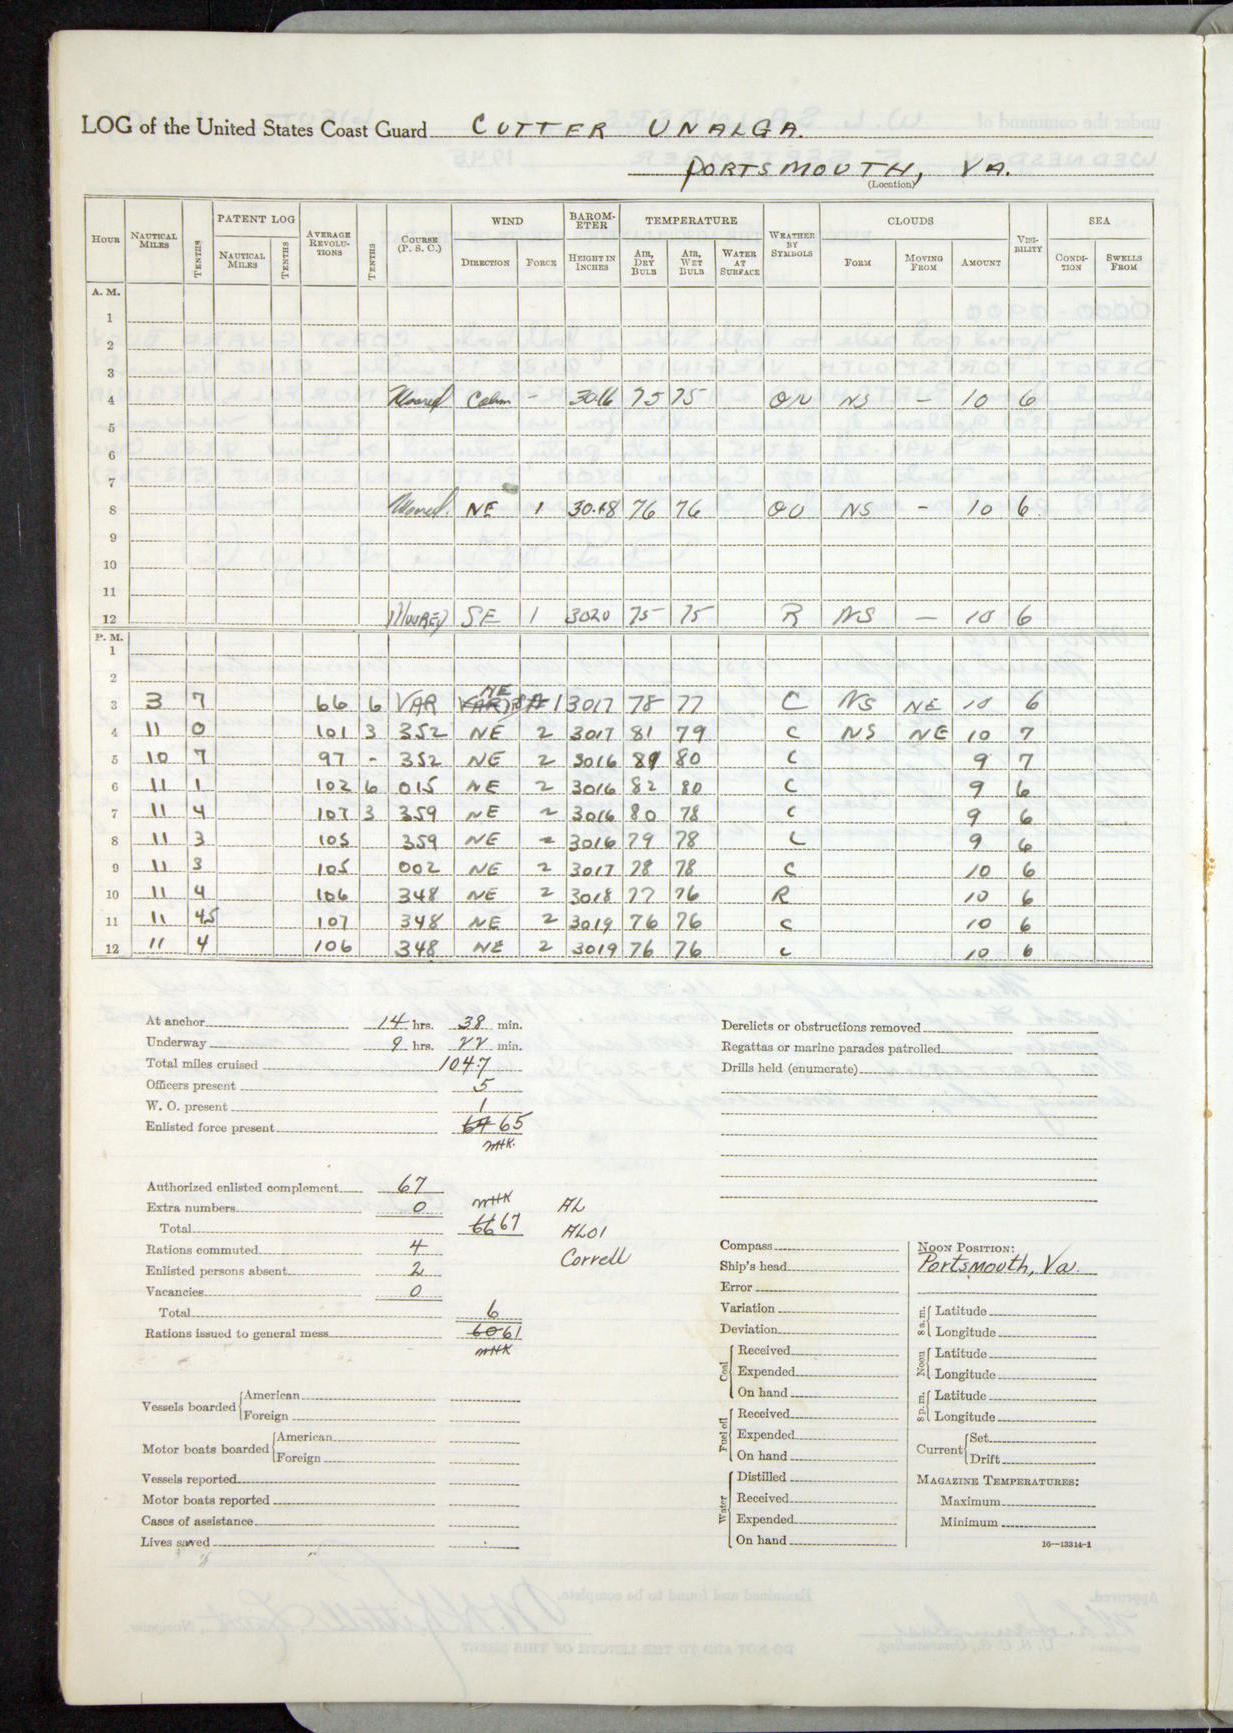 LOG of the United States Coast Guard CUTTER UNALGA.
PORTSMOUTH, VA.
(Location)
HOUR NAUTICAL MILES TENTHS PATENT LOG NAUTICAL MILES TENTHS AVERAGE REVOLU-TIONS TENTHS COURSE (P. S. C.) WIND DIRECTION FORCE BAROM-ETER HEIGHT IN INCHES TEMPERATURE AIR, DRY BULB AIR, WET BULB WATER AT SURFACE WEATHER BY SYMBOLS CLOUDS FORM MOVING FROM AMOUNT VISI-BILITY SEA CONDI-TION SWELLS FROM
A. M.
1
2
3
4 Moored Calm - 3016 75 75 OU NS - 10 6
5
6
7
8 Moored NE 1 30.18 76 76 OU NS - 10 6
9
10
11
12 MOORED SE 1 3020 75 75 R NS - 10 6
P. M.
1
2
3 3 7 66 6 VAR NE 1 3017 78 77 C NS NE 10 6
4 11 0 101 3 352 NE 2 3017 81 79 C NS NE 10 7
5 10 7 97 - 352 NE 2 3016 80 C 9 7
6 11 1 102 6 015 NE 2 3016 82 80 C 9 6
7 11 4 107 3 359 NE 2 3016 80 78 C 9 6
8 11 3 105 359 NE 2 3016 79 78 C 9 6
9 11 3 105 002 NE 2 3017 78 78 C 10 6
10 11 4 106 348 NE 2 3018 77 76 R 10 6
11 11 45 107 348 NE 2 3019 76 76 C 10 6
12 11 4 106 348 NE 2 3019 76 76 C 10 6
At anchor 14 hrs. 38 min.
Underway 9 hrs. 22 min.
Total miles cruised 104.7
Officers present 5
W. O. present 1
Enlisted force present 64 65
MHK.
Authorized enlisted complement 67
Extra numbers 0 MHK AL
Total 66 67 AL01
Rations commuted 4 Correll
Enlisted persons absent 2
Vacancies 0
Total 6
Rations issued to general mess 60 61
MHK
Vessels boarded American
Foreign
Motor boats boarded American
Foreign
Vessels reported
Motor boats reported
Cases of assistance
Lives saved
Derelicts or obstructions removed
Regattas or marine parades patrolled
Drills held (enumerate)
Compass
Ship's head
Error
Variation
Deviation
Coal Received
Expended
On hand
Fuel oil Received
Expended
On hand
Water Distilled
Received
Expended
On hand
NOON POSITION:
Portsmouth, Va.
8 a.m. Latitude
Longitude
Noon Latitude
Longitude
8 p.m. Latitude
Longitude
Current Set
Drift
MAGAZINE TEMPERATURES:
Maximum
Minimum
16—13314-1